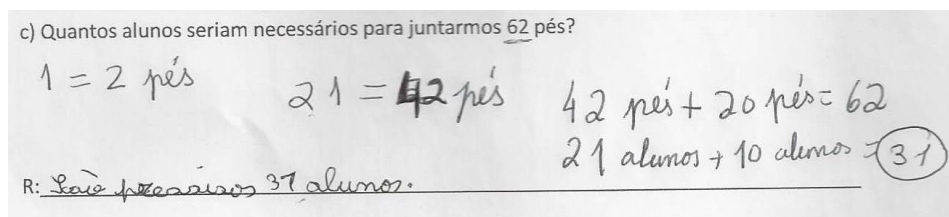 c) Quantos alunos seriam necessários para juntarmos 62 pés?
1 = 2 pés
21 = 42 pés
42 pés + 20 pés = 62
21 alunos + 10 alunos = 31
R: São precisos 31 alunos.